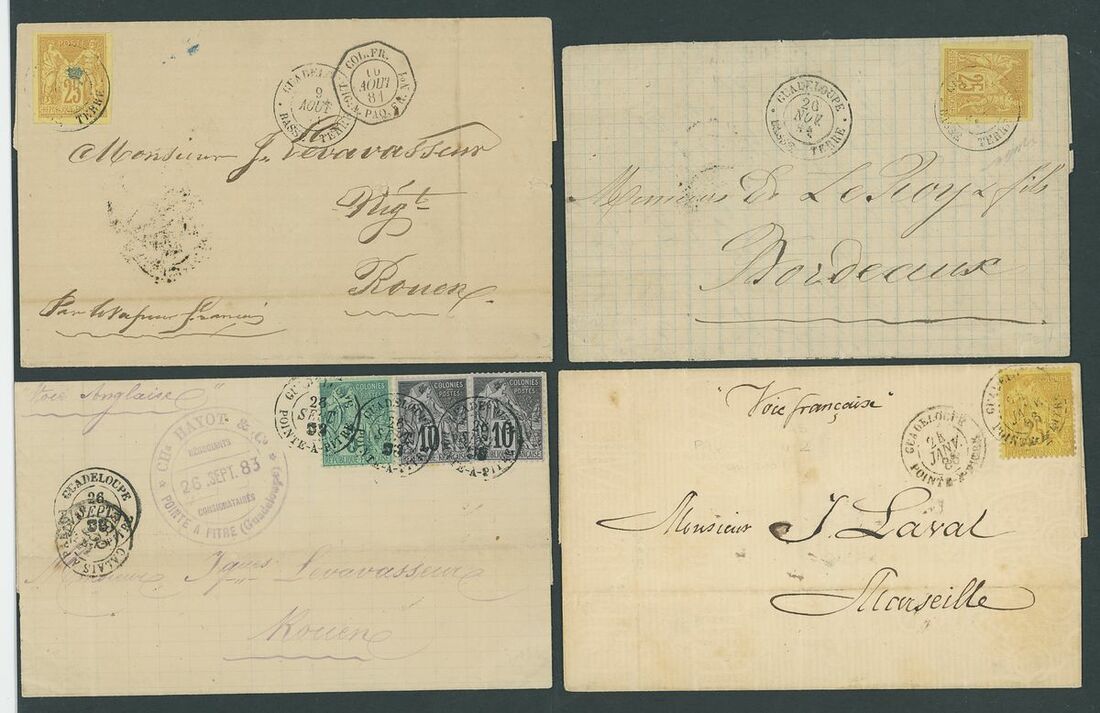 POSTE
25
GUADELOUPE
9
AOUT
BASSE TERRE
COL. FR.
10
AOUT
81
LIG. A. PAQ. F.
Monsieur J. Levavasseur
Négt
Rouen
Par Vapeur français
25
GUADELOUPE
26
NOV.
BASSE TERRE
Messieurs De Le Roy & fils
Bordeaux
"Voie Anglaise"
CHs HAYOT & Cie
NEGOCIANTS
26 SEPT. 83
CONSIGNATAIRES
POINTE A PITRE (Guadeloupe)
GUADELOUPE
26
SEPT
POINTE-A-PITRE
COLONIES
REPUBLIQUE
COLONIES
POSTES
10
COLONIES
POSTES
10
GUADELOUPE
26
SEPT
CALAIS A
Monsieur Jques Levavasseur
Rouen
"Voie française"
GUADELOUPE
JANV.
POINTE-A-PITRE
Monsieur J. Laval
Marseille